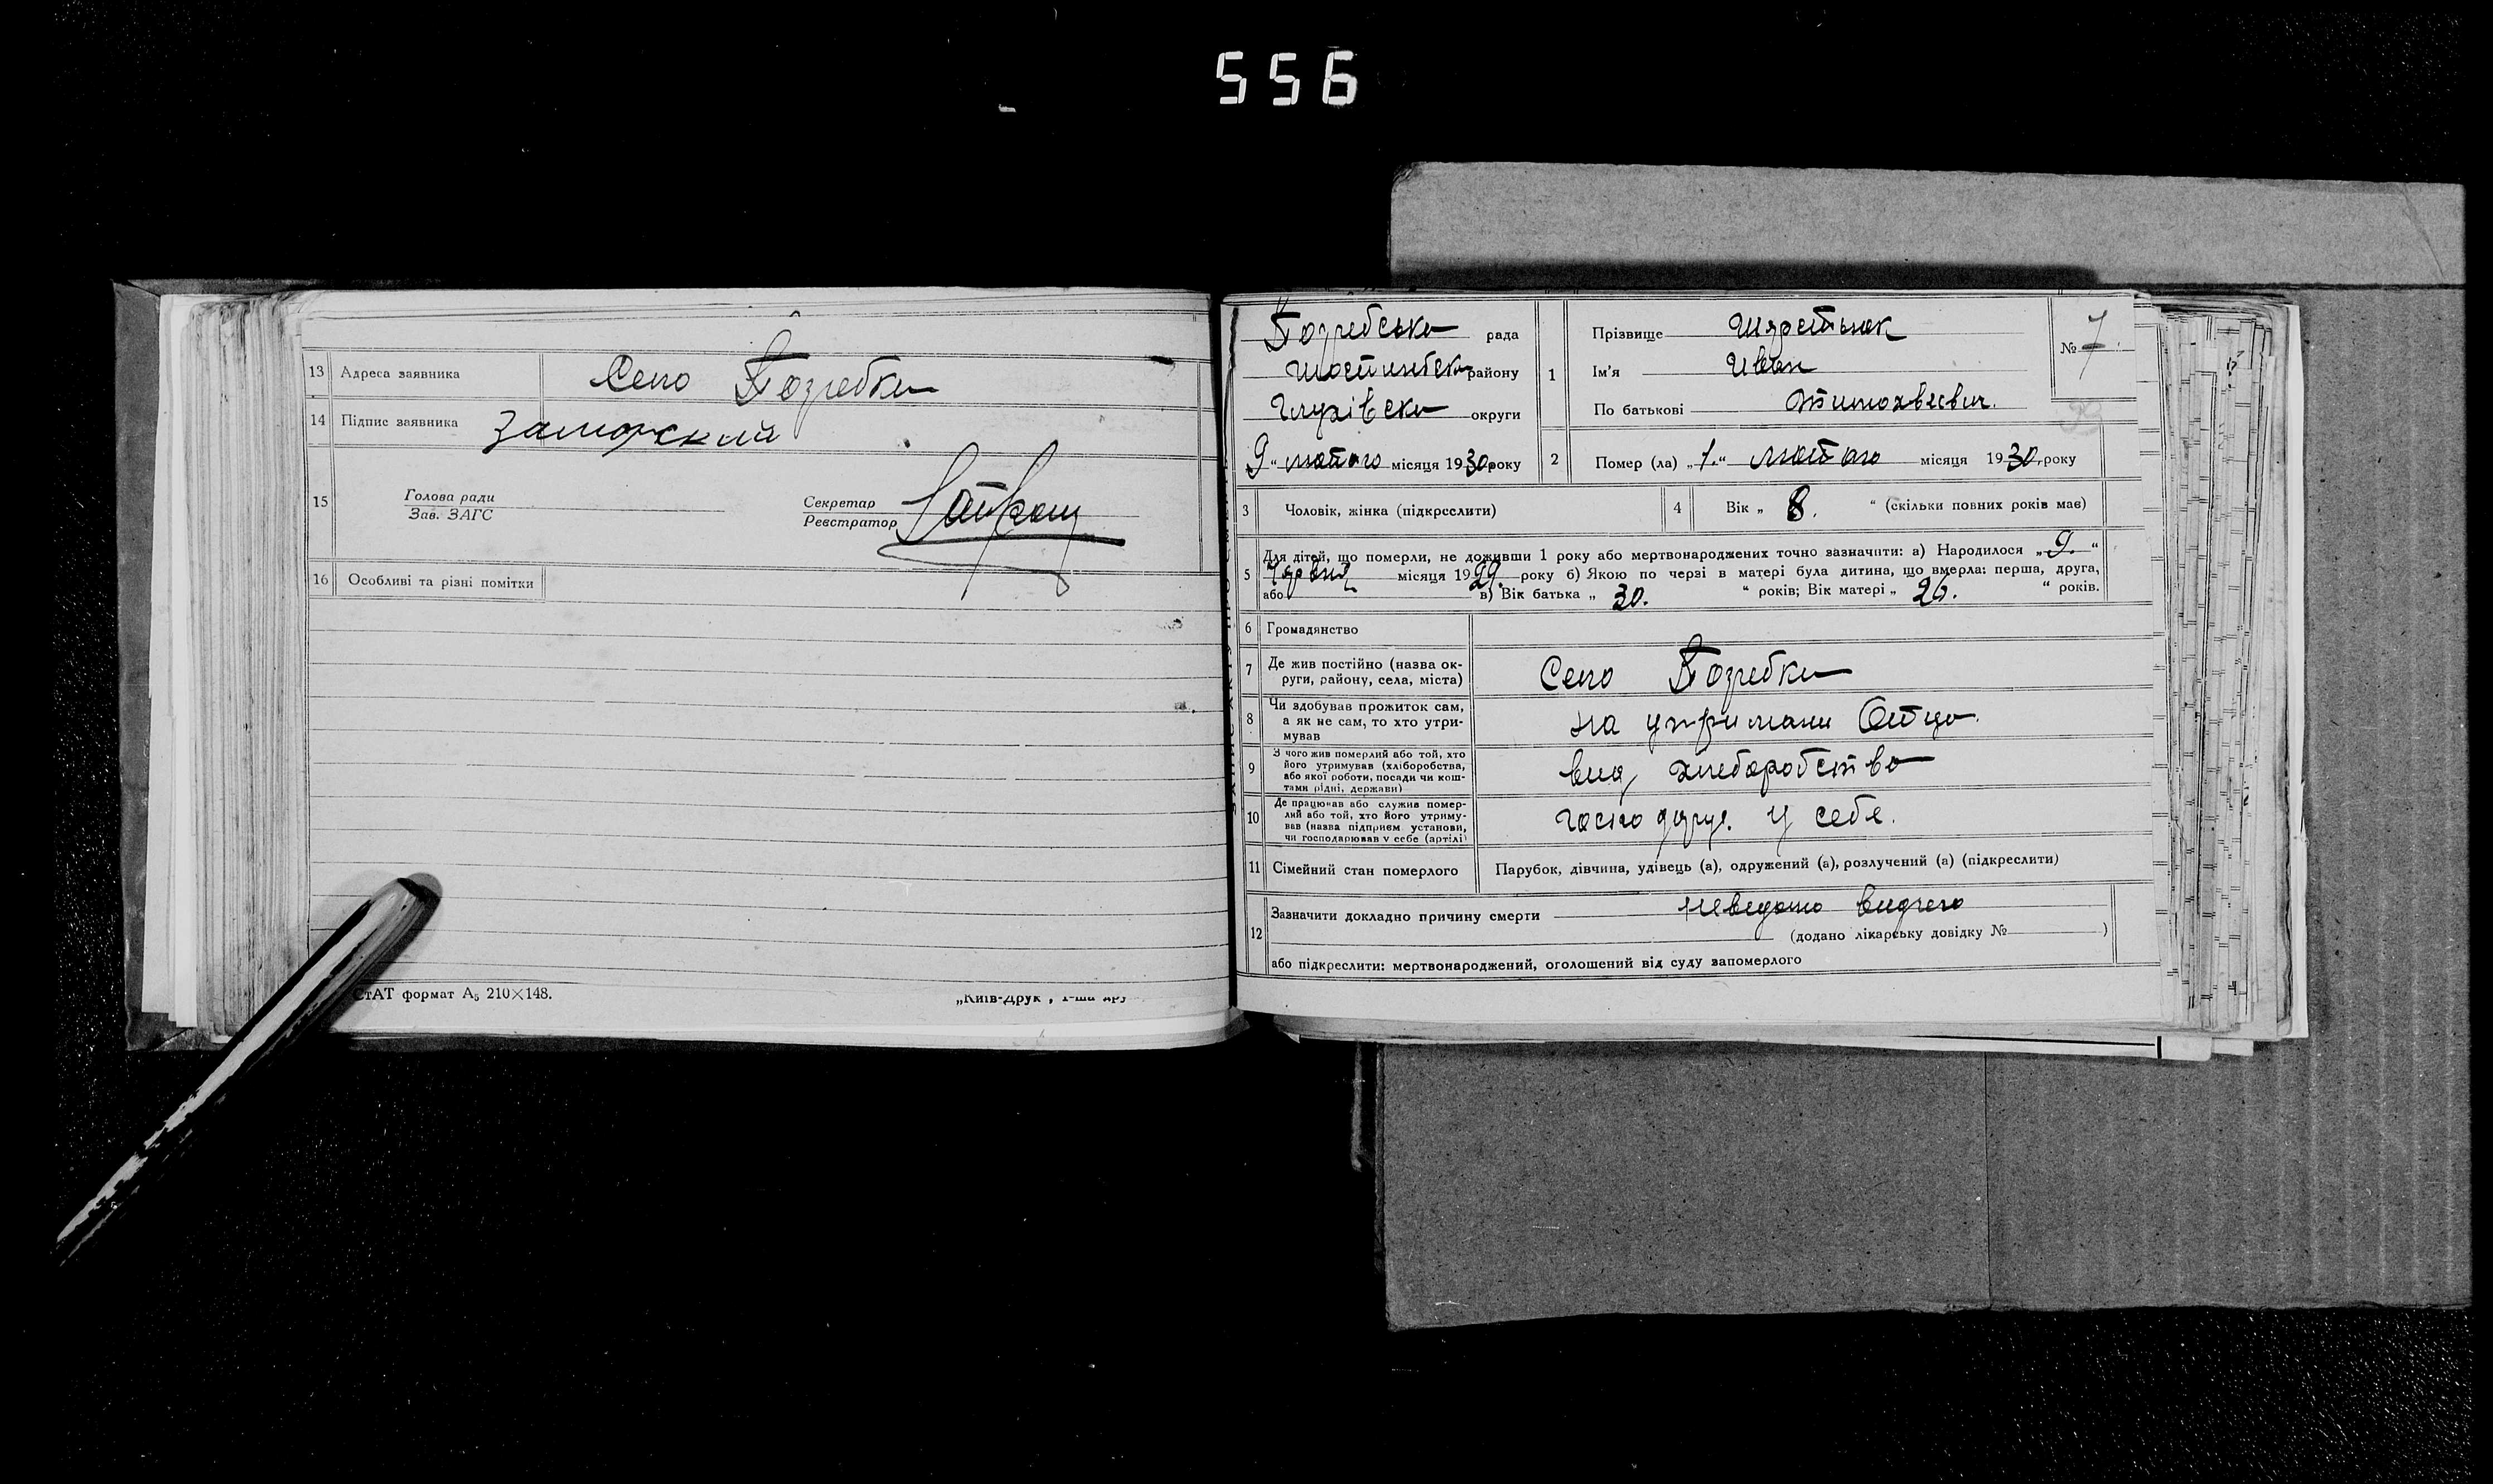 556
13 Адреса заявника Село Погребки
14 Підпис заявника Заморский
15 Голова ради Секретар
Зав. ЗАГС Реєстратор
16 Особливі та різні помітки
СтАТ формат А₅ 210×148.
„Київ-Друк", 1-ша дру
Погребська рада
Шостинськ району
Глухівська округи
9 " лютого місяця 1930 року
1 Прізвище Шерстюк
Ім'я Иван
По батькові Тимохвеевич.
№ 7.
2 Помер (ла) „1." лютого місяця 1930 року
3 Чоловік, жінка (підкреслити)
4 Вік „ 8. " (скільки повних років має)
5 Для дітей, що померли, не доживши 1 року або мертвонароджених точно зазначити: а) Народилося „9."
Червня місяця 1929. року б) Якою по черзі в матері була дитина, що вмерла: перша, друга,
або в) Вік батька „ 30. " років; Вік матері „ 26. " років.
6 Громадянство
7 Де жив постійно (назва ок-
руги, району, села, міста)
Село Погребки
8 Чи здобував прожиток сам,
а як не сам, то хто утри-
мував
на утримани Отца.
9 З чого жив померлий або той, хто
його утримував (хліборобства,
або якої роботи, посади чи кош-
тами рідні, держави)
вид хлеборобство
10 Де працював або служив помер-
лий або той, хто його утриму-
вав (назва підприєм. установи,
чи господарював у себе (артілі)
господарує у себе.
11 Сімейний стан померлого Парубок, дівчина, удівець (а), одружений (а), розлучений (а) (підкреслити)
12 Зазначити докладно причину смерти неведомо видчего
(додано лікарську довідку № )
або підкреслити: мертвонароджений, оголошений від суду запомерлого